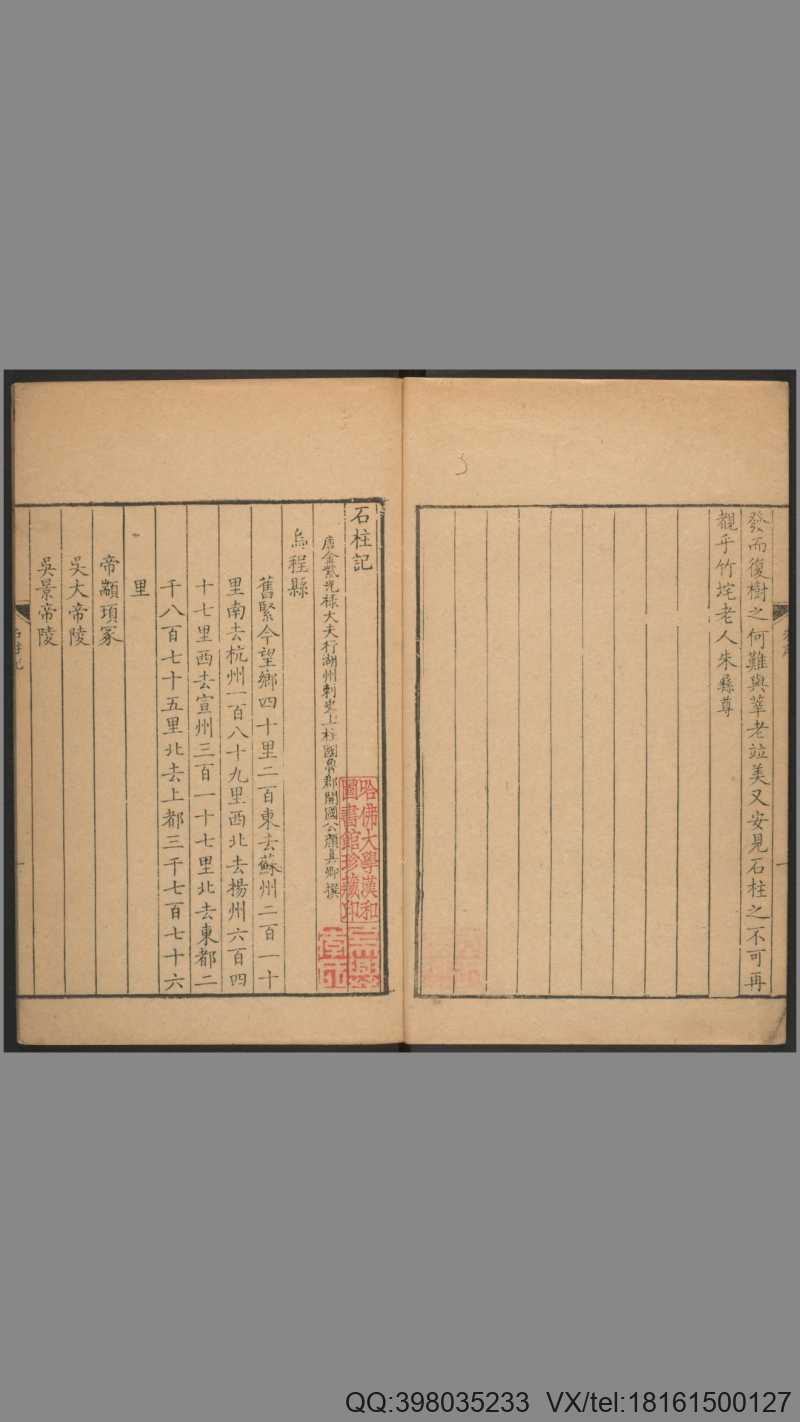 發而復樹之何難與莘老竝美又安見石柱之不可再
覩乎竹垞老人朱彝尊
石柱記
唐金紫光祿大夫行湖州刺史上柱國魯郡開國公顏真卿撰
烏程縣
舊緊今望鄉四十里二百東去蘇州二百一十
里南去杭州一百八十九里西北去楊州六百四
十七里西去宣州三百一十七里北去東都二
千八百七十五里北去上都三千七百七十六
里
帝顓頊冢
吳大帝陵
吳景帝陵
哈佛大學漢和
圖書館珍藏印
QQ:398035233 VX/tel:18161500127